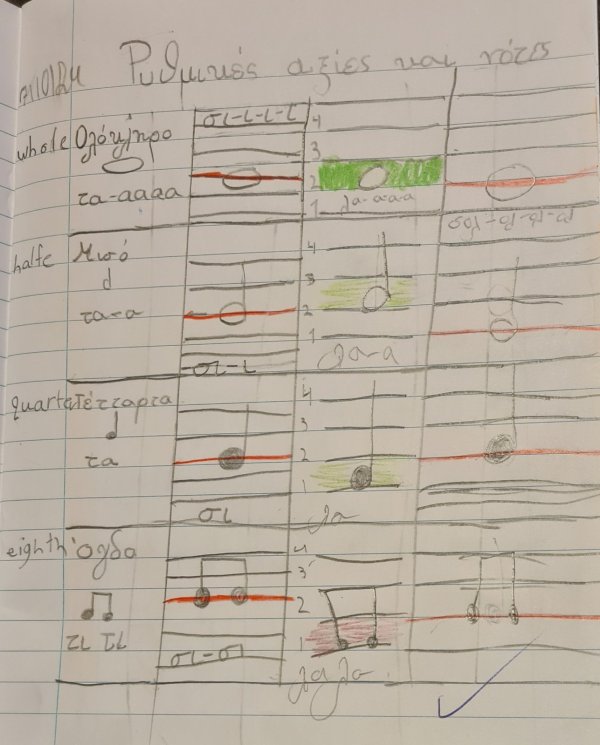 7/10/24 Ρυθμικές αξίες και νότες
σι-ι-ι-ι
whole Ολόκληρο
τα-αααα
4
3
2
1
λα-ααα
σολ-ολ-ολ-ολ
halfe Μισό
τα-α
4
3
2
1
σι-ι
λα-α
quarta Τέταρτα
τα
4
3
2
1
σι
λα
eighth Όγδο
τι τι
4
3
2
1
σι-σι
λαλα